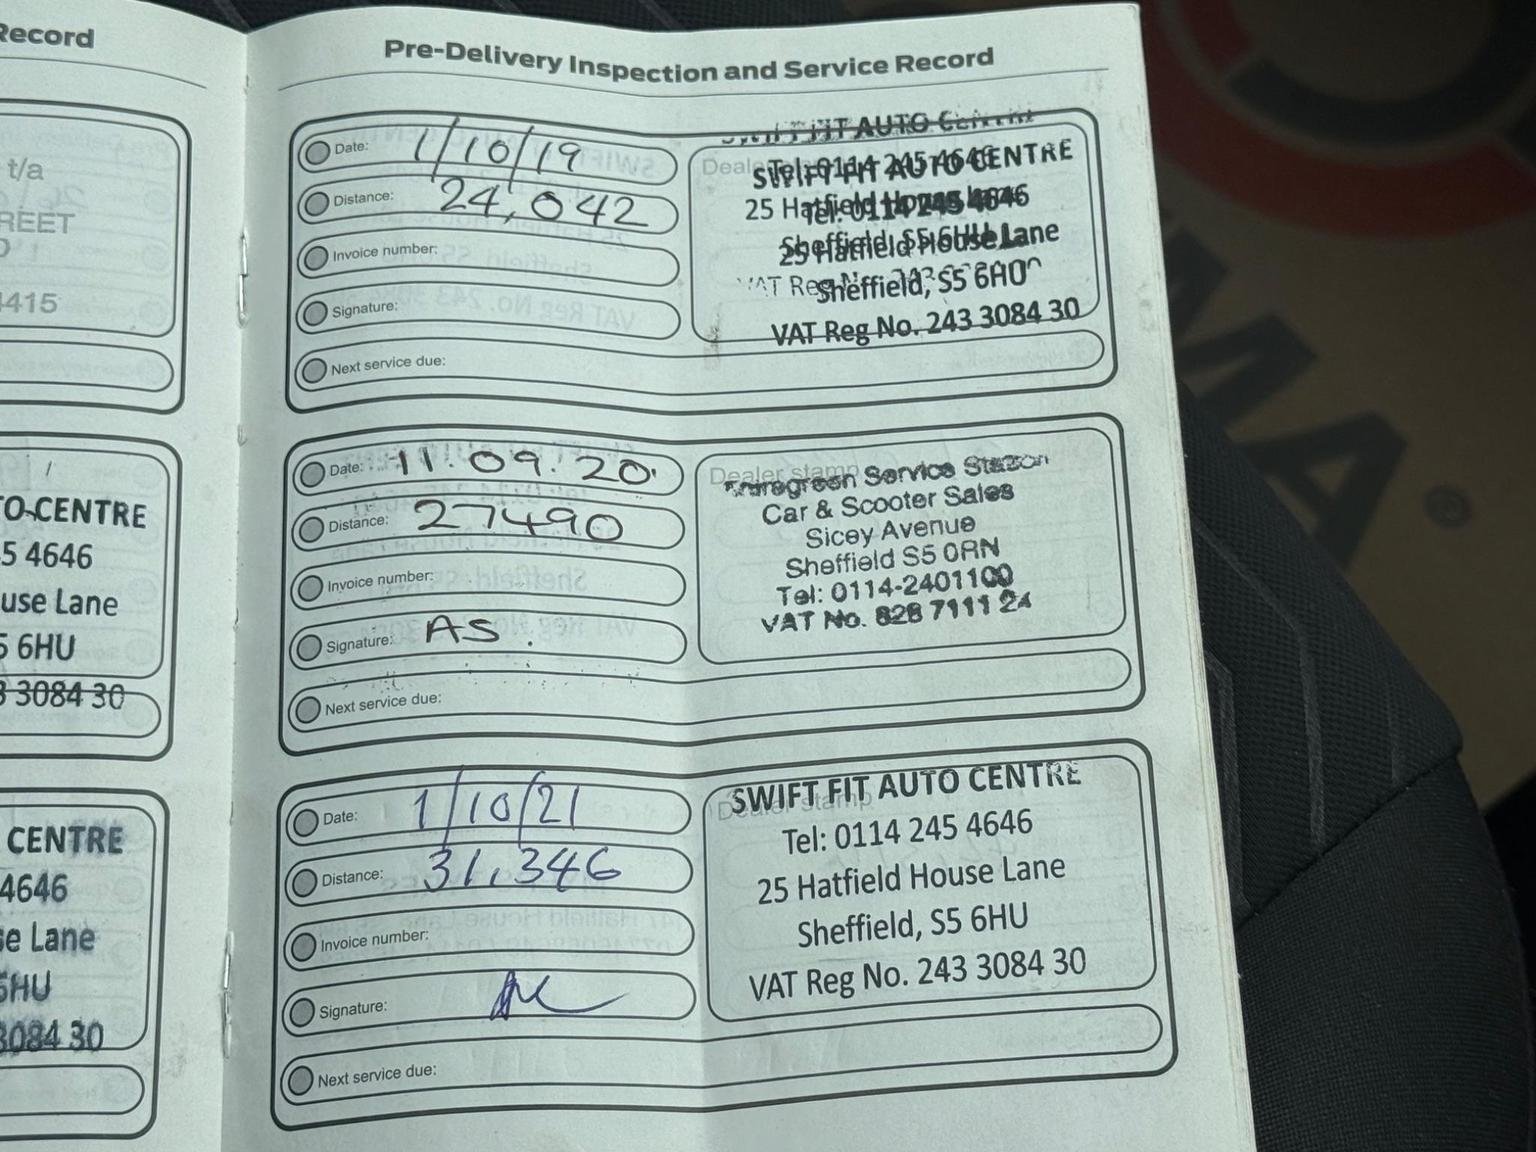 Record
t/a
REET
4415
O-CENTRE
5 4646
use Lane
5 6HU
3 3084 30
CENTRE
4646
se Lane
6HU
3084 30
Pre-Delivery Inspection and Service Record
Date: 1/10/19
Distance: 24,042
Invoice number:
Signature:
Next service due:
SWIFT FIT AUTO CENTRE
Tel: 0114 245 4646
25 Hatfield House Lane
Sheffield, S5 6HU
VAT Reg No.
SWIFT FIT AUTO CENTRE
Tel: 0114 245 4646
25 Hatfield House Lane
Sheffield, S5 6HU
VAT Reg No. 243 3084 30
Date: 11.09.20.
Distance: 27490
Invoice number:
Signature: AS.
Next service due:
Dealer stamp
Service Station
Car & Scooter Sales
Sicey Avenue
Sheffield S5 0RN
Tel: 0114-2401100
VAT No. 828 7111 24
Date: 1/10/21
Distance: 31,346
Invoice number:
Signature:
Next service due:
Dealer stamp
SWIFT FIT AUTO CENTRE
Tel: 0114 245 4646
25 Hatfield House Lane
Sheffield, S5 6HU
VAT Reg No. 243 3084 30
MA®